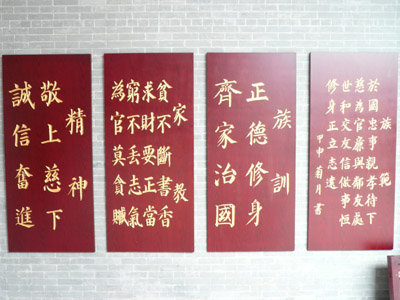 族範
於國忠事親孝待下
慈為官廉與鄰友處
世和交友信做事恒
修身正立志遠
甲申菊月書
族訓
正德修身
齊家治國
家教
貧不斷書香
求財要正當
窮不丟志氣
為官莫貪贓
精神
敬上慈下
誠信奮進